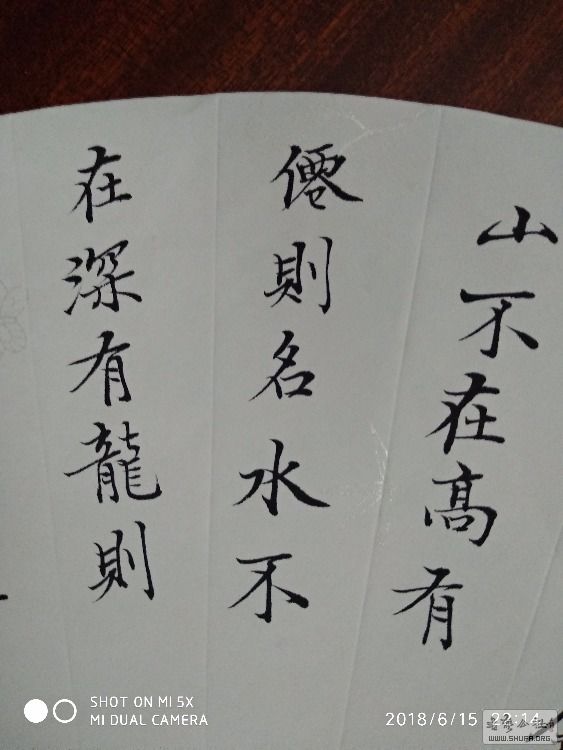 山不在高有
僊則名水不
在深有龍則
SHOT ON MI 5X
MI DUAL CAMERA
2018/6/15 22:14
WWW.SHUFA.ORG